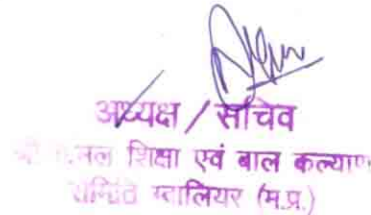 अध्यक्ष / सचिव
शिक्षा एवं बाल कल्याण
समिति ग्वालियर (म.प्र.)